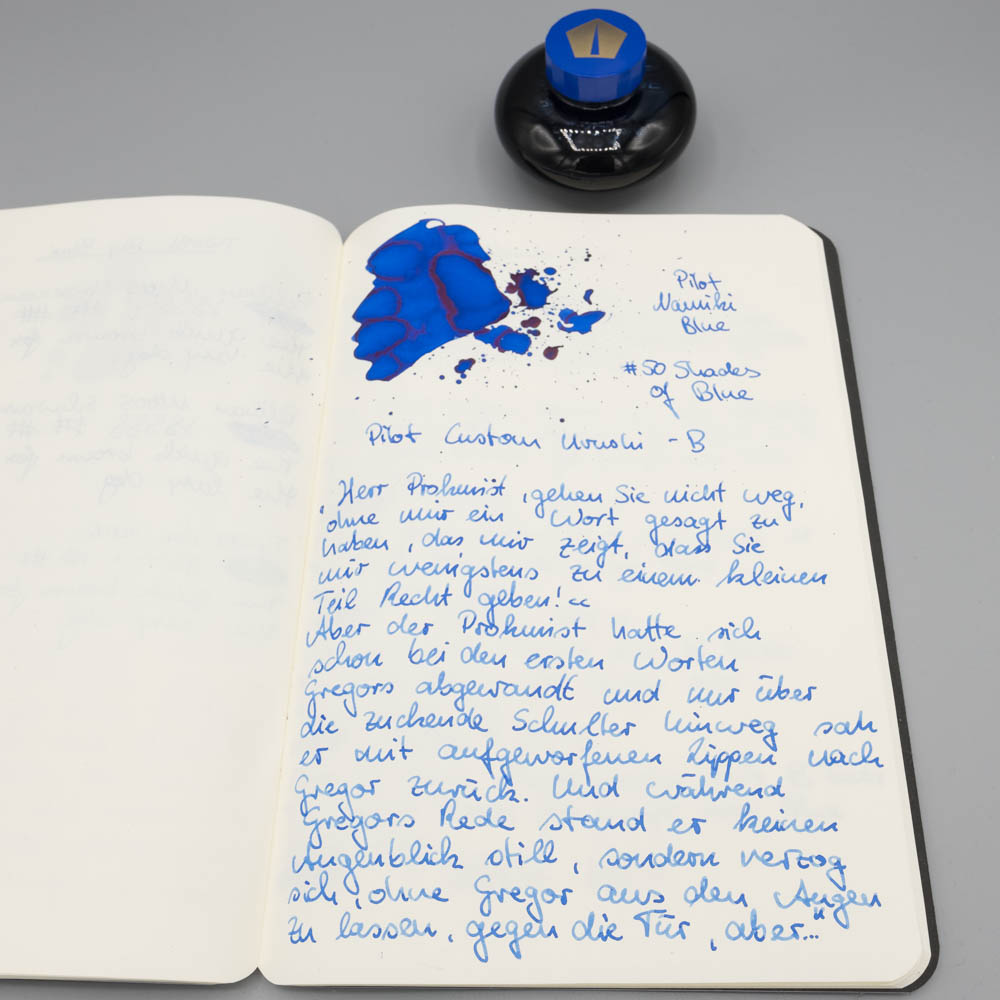 Pilot
Namiki
Blue
#50 Shades
of Blue
Pilot Custom Urushi - B
„Herr Prokurist, gehen Sie nicht weg,
ohne mir ein Wort gesagt zu
haben, das mir zeigt, dass Sie
mir wenigstens zu einem kleinen
Teil Recht geben!“
Aber der Prokurist hatte sich
schon bei den ersten Worten
Gregors abgewandt und nur über
die zuckende Schulter hinweg sah
er mit aufgeworfenen Lippen nach
Gregor zurück. Und während
Gregors Rede stand er keinen
Augenblick still, sondern verzog
sich, ohne Gregor aus den Augen
zu lassen, gegen die Tür, aber..."